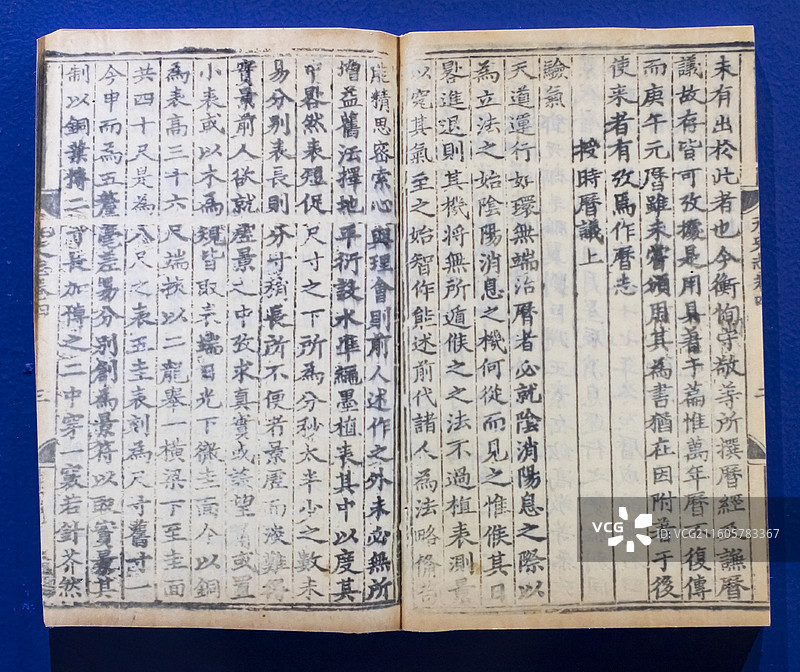 未有出於此者也今衡恂守敬等所撰曆經及謙曆
議故存皆可攷據是用具著于篇惟萬年曆不復傳
而庚午元曆雖未嘗頒用其為書猶在因附著于後
使来者有攷焉作曆志
授時曆議上
驗氣
天道運行如環無端治曆者必就陰消陽息之際以
為立法之始陰陽消息之機何從而見之惟候其日
晷進退則其機將無所遁候之之法不過植表測景
以究其氣至之始智作能述前代諸人為法略備苟
能精思密索心與理會則前人述作之外未必無所
增益舊法擇地平衍設水準繩墨植表其中以度其
中晷然表短促尺寸之下所為分秒太半少之數未
易分別表長則分寸稍長所不便者景虛而淡難得
實景前人欲就虛景之中攷求真實或設望筩或置
小表或以木為規皆取表端日光下徹圭面今以銅
為表高三十六尺端挾以二龍舉一橫梁下至圭面
共四十尺是為八尺之表五圭表刻為尺寸舊寸一
今申而為五釐毫差易分別創為景符以取實景其
制以銅葉博二寸長加博之二中穿一竅若針芥然
VCG
VCG.COM
ID:VCG211605783367